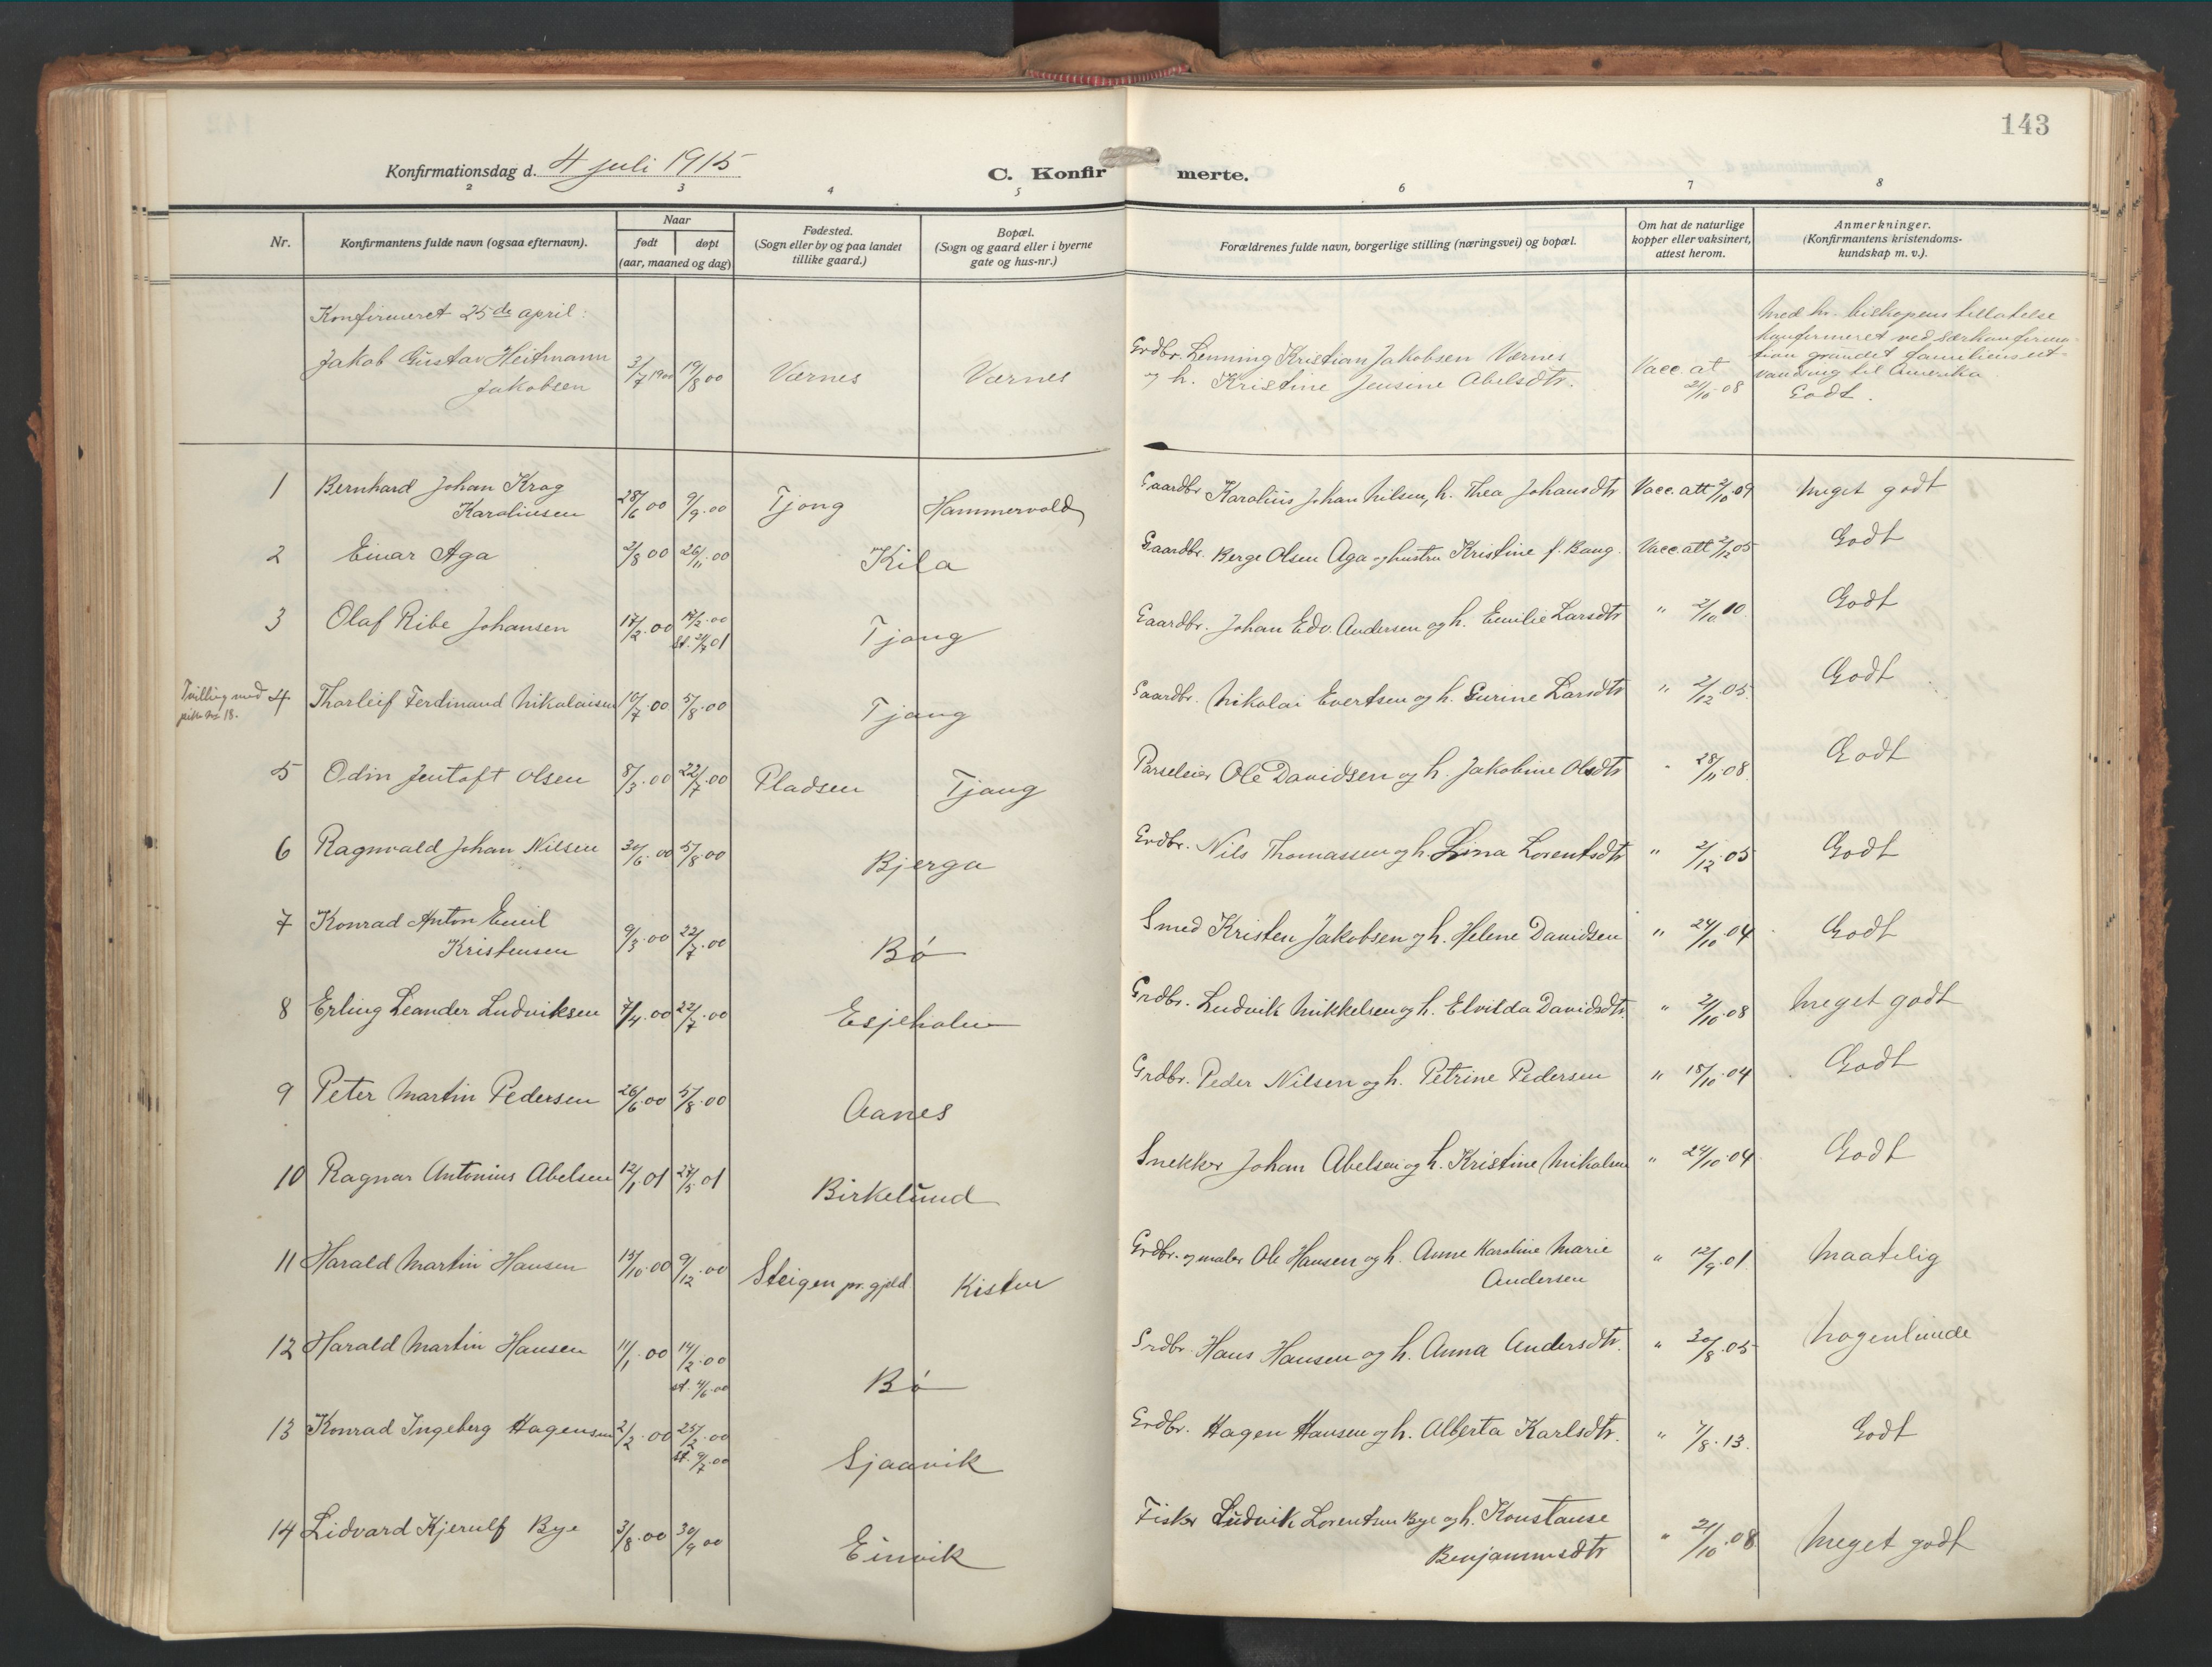 143
Konfirmationsdag d. 4 juli 1915
C. Konfirmerte.
2 3 4 5 6 7 8
Nr.
Konfirmantens fulde navn (ogsaa efternavn).
Naar
født døpt
(aar, maaned og dag)
Fødested.
(Sogn eller by og paa landet
tillike gaard.)
Bopæl.
(Sogn og gaard eller i byerne
gate og hus-nr.)
Forældrenes fulde navn, borgerlige stilling (næringsvei) og bopæl.
Om hat de naturlige
kopper eller vaksinert,
attest herom.
Anmerkninger.
(Konfirmantens kristendoms-
kundskap m. v.).
Konfirmeret 25de april:
Jakob Gustav Heitmann
Jakobsen
3/7 1900 19/8 00 Værnes Værnes
Grdbr. Lenning Kristian Jakobsen Værnes
og h. Kristine Jensine Abelsdtr.
Vacc. at
21/10 08
Med hr. biskopens tillatelse
konfirmeret ved særkonfirma-
tion grundet familiens ut-
vandring til Amerika
Godt.
1 Bernhard Johan Krag
Karoliusen
28/6 00 9/9.00 Tjong Hammervold Gaardbr Karolius Johan Nilsen, h. Thea Johansdtr Vacc. att 2/10.09 Meget godt
2 Einar Aga 2/8 00 26/11.00 Kila Gaardbr. Berge Olsen Aga og hustru Kristine f. Bang. Vacc. att 2/12 05 Godt
3 Olaf Ribe Johansen 17/2.00 17/2.00
st. 21/7 01
Tjong Gaardbr. Johan Edv. Andersen og h. Emilie Larsdtr " 2/10.10. Godt
Tvilling med
pike No 18.
4 Thorleif Ferdinand Nikolaisen 10/7.00 5/8.00 Tjong Gaardbr. Nikolai Evertsen og h. Gurine Larsdtr " 2/12.05. Godt
5 Odin Jentoft Olsen 8/3.00 22/7.00 Pladsen Tjong Parseleier Ole Davidsen og h. Jakobine Olsdtr " 28/11 08. Godt
6 Ragnvald Johan Nilsen 30/6.00 5/8.00 Bjerga Grdbr. Nils Thomassen og h. Lina Lorentsdtr " 2/12.05 Godt
7 Konrad Anton Emil
Kristensen
9/3.00 22/7.00 Bø Smed Kristen Jakobsen og h. Helene Davidsen " 24/10.04 Godt
8 Erling Leander Ludviksen 7/4.00 22/7.00 Esjeholm Grdbr. Ludvik Mikkelsen og h. Elvilda Davidsdtr. " 21/10.08 Meget godt
9 Peter Martin Pedersen 26/6.00 5/8.00 Aanes Grdbr. Peder Nilsen og h. Petrine Pedersen " 18/10.04 Godt
10 Ragnar Antonius Abelsen 12/1.01 27/5.01 Birkelund Snekker Johan Abelsen og h. Kristine Mikalsen " 24/10.04. Godt
11 Harald Martin Hansen 15/10.00 9/12.00 Steigen pr.gjeld Kistur Grdbr. og maler Ole Hansen og h. Anne Karoline Marie
Andersen
" 12/9.01 Maatelig
12 Harald Martin Hansen 11/1.00 14/2.00
st. 4/6.00
Bø Grdbr. Hans Hansen og h. Anna Andersdtr. " 30/8.05 Nogenlunde
13 Konrad Ingeberg Hagensen 2/2.00 25/2.00
st. 9/7.00
Sjaavik Grdbr. Hagen Hansen og h. Alberta Karlsdtr. " 7/8.13. Godt
14 Lidvard Kjerulf Bye 3/8.00 30/9 00 Einvik Fisker Ludvik Lorentsen Bye og h. Konstanse
Benjaminsdtr
" 21/10.08 Meget godt